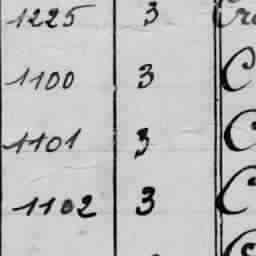 1225 3
1100 3 C
1101 3 C
1102 3 C